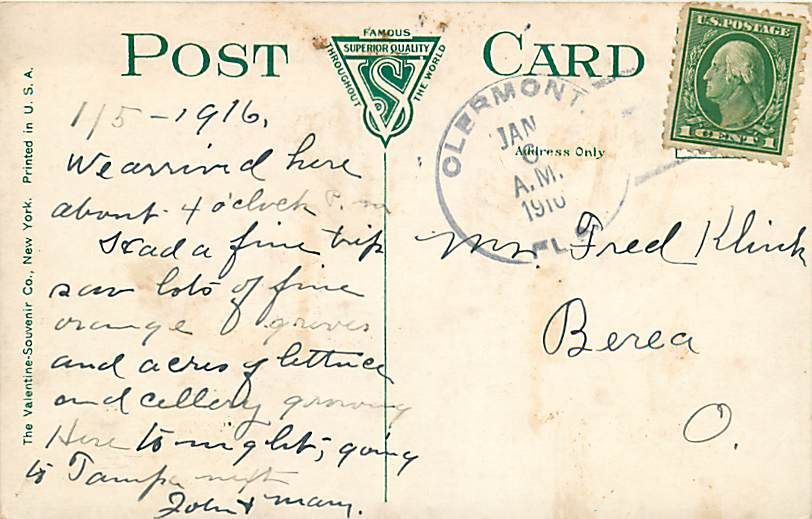 POST CARD
FAMOUS
SUPERIOR QUALITY
THROUGHOUT THE WORLD
VS
U.S. POSTAGE
1 CENT 1
CLERMONT,
JAN
A.M.
1916
FLA
Address Only
The Valentine-Souvenir Co., New York. Printed in U. S. A.
1/5 - 1916,
We arrived here
about 4 o'clock P. m
Had a fine trip
saw lots of fine
orange groves
and acres of lettuce
and cellery growing
Here to night, going
to Tampa next
John & Mary.
Mr. Fred Klink
Berea
O.